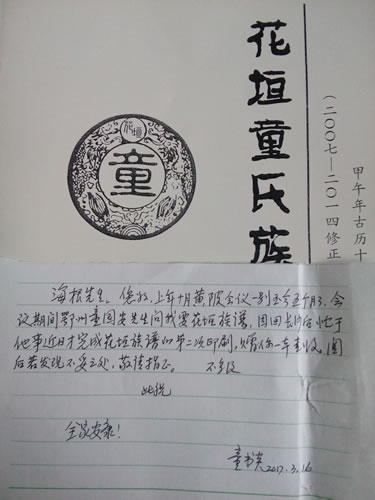 花垣童氏族
(二〇〇七—二〇一四修正
甲午年古历十
花垣
童
海松先生。您好,上年十月黄陂会议一别至今五个月了,会
议期间鄂州童国安先生问我要花垣族谱,因回长沙后忙于
他事近日才完成花垣族谱的第二次印刷,
后若发现不妥之处,敬请指正。 不多叙
此祝
全家安康!
2017.3.16